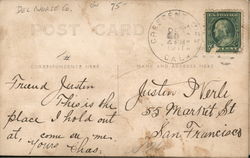 DEL NORTE CO. 75-
POST CARD
CRESCENT
CAL.
CORRESPONDENCE HERE
NAME AND ADDRESS HERE
Friend Justin
This is the
place I hold out
at, come on, me.
Yours Chas.
Justin D Kerle
55 Market St
San Francisco